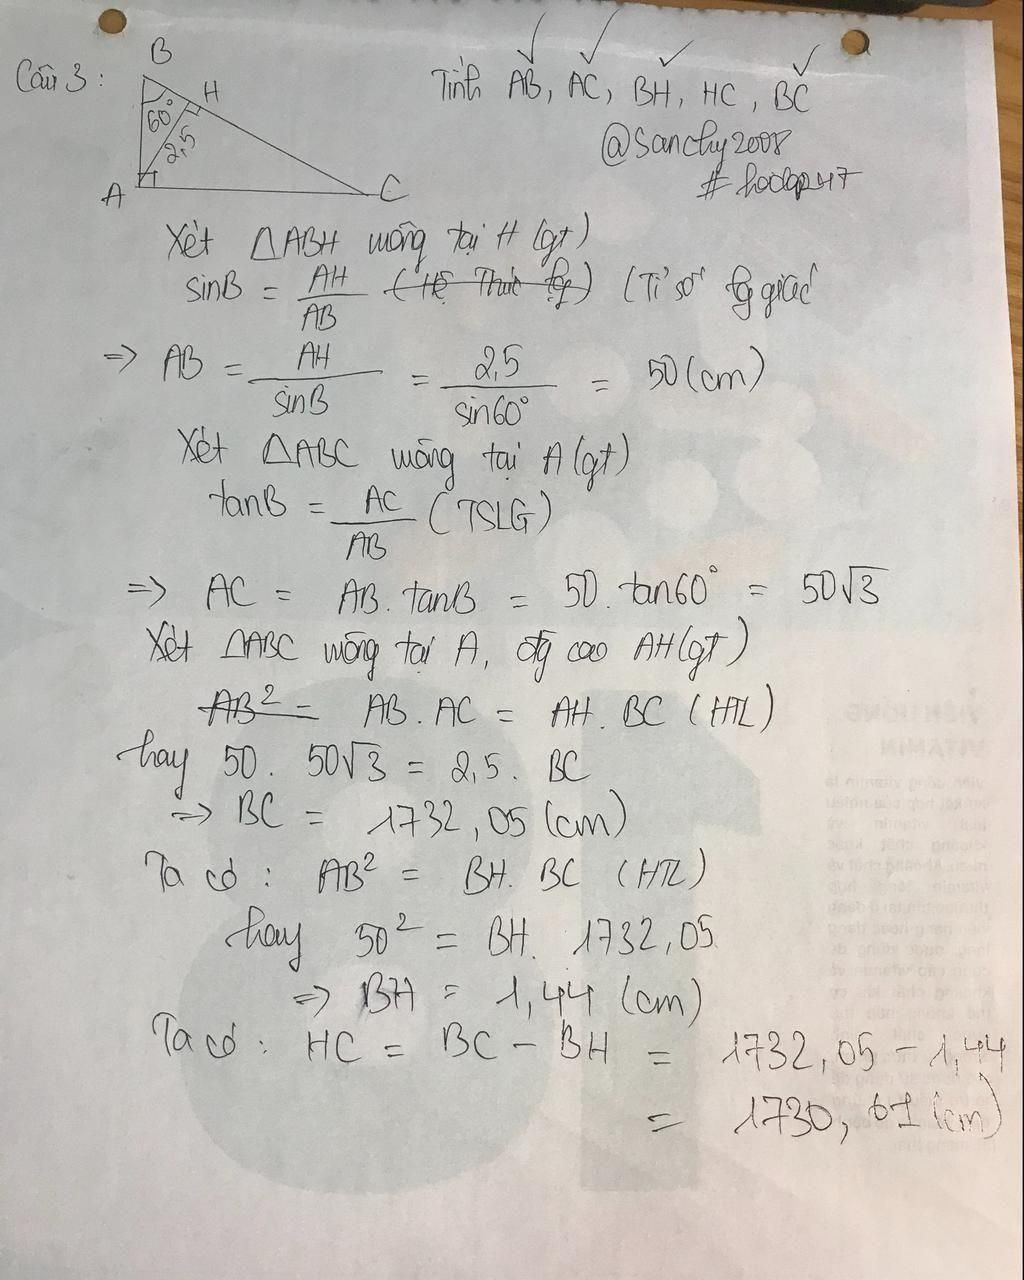 Câu 3:
B
H
60°
2,5
A
C
Tính AB, AC, BH, HC, BC
@Sanchy2008
Xét △ABH vuông tại H (gt)
sinB = AH/AB (Hệ Thức lg) (Tỉ số lg giác
=> AB = AH/sinB = 2,5/sin60° = 50 (cm)
Xét △ABC vuông tại A (gt)
tanB = AC/AB (TSLG)
=> AC = AB. tanB = 50. tan60° = 50√3
Xét △ABC vuông tại A, đg cao AH (gt)
AB² = AB. AC = AH. BC (HTL)
hay 50. 50√3 = 2,5. BC
=> BC = 1732,05 (cm)
Ta có: AB² = BH. BC (HTL)
hay 50² = BH. 1732,05
=> BH = 1,44 (cm)
Ta có: HC = BC - BH = 1732,05 - 1,44
= 1730,61 (cm)
81
VIÊN UỐNG
VITAMIN